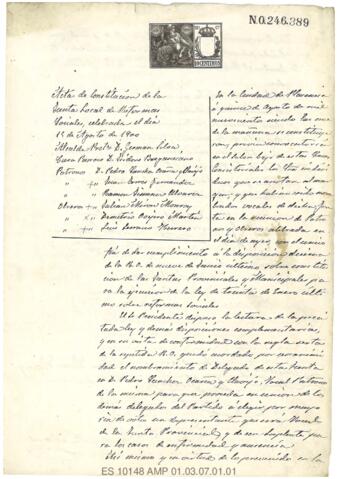 N.0.246.389
10 CENTIMOS
Acta de Constitucion de la
Junta Local de Reformas
Sociales, celebrada el dia
15 de Agosto de 1900
Alcalde Presdte D. German Silva
Cura Parroco D. Isidoro
Patrono D. Pedro Sanchez Ocaña
" " Juan Fernandez
" " Ramon
Obrero " Julian Monroy
" " Demetrio Martin
" " Luis Serrano Herrero
En la Ciudad de Plasencia
á quince de Agosto de mil
novecientos siendo las once
de la mañana se constituye
ron, previa convocatoria
en el Salon bajo de estas Casas
Consistoriales los Sres indivi
duos que se anotan al mar
gen, y que habian sido nom
brados vocales de dicha Jun
ta en la reunion de Patro
nos y obreros celebrada en
el dia de ayer, con el unico
fin de dar cumplimiento á la disposicion
de la R. O. de nueve de Junio último sobre constitu
cion de las Juntas Provinciales y Municipales pa
ra la ejecucion de la ley de treinta de Enero últi
mo sobre reformas sociales
El Sr Presidente dispuso la lectura de la preci
tada ley y demás disposiciones complementarias,
y en su vista de conformidad con la regla sesta
de la repetida R. O. quedó acordado por unanimi
dad el nombramiento de Delegado de esta Junta
en D. Pedro Sanchez Ocaña y Vocal Patrono
de la misma para que proceda en union de los
demás delegados del Partido á elegir por mayo
ria de votos un representante que será Vocal
de la Junta Provincial y de un suplente pa
ra los casos de enfermedad y ausencia
Asi mismo y en virtud de lo prevenido en la
ES 10148 AMP 01.03.07.01.01